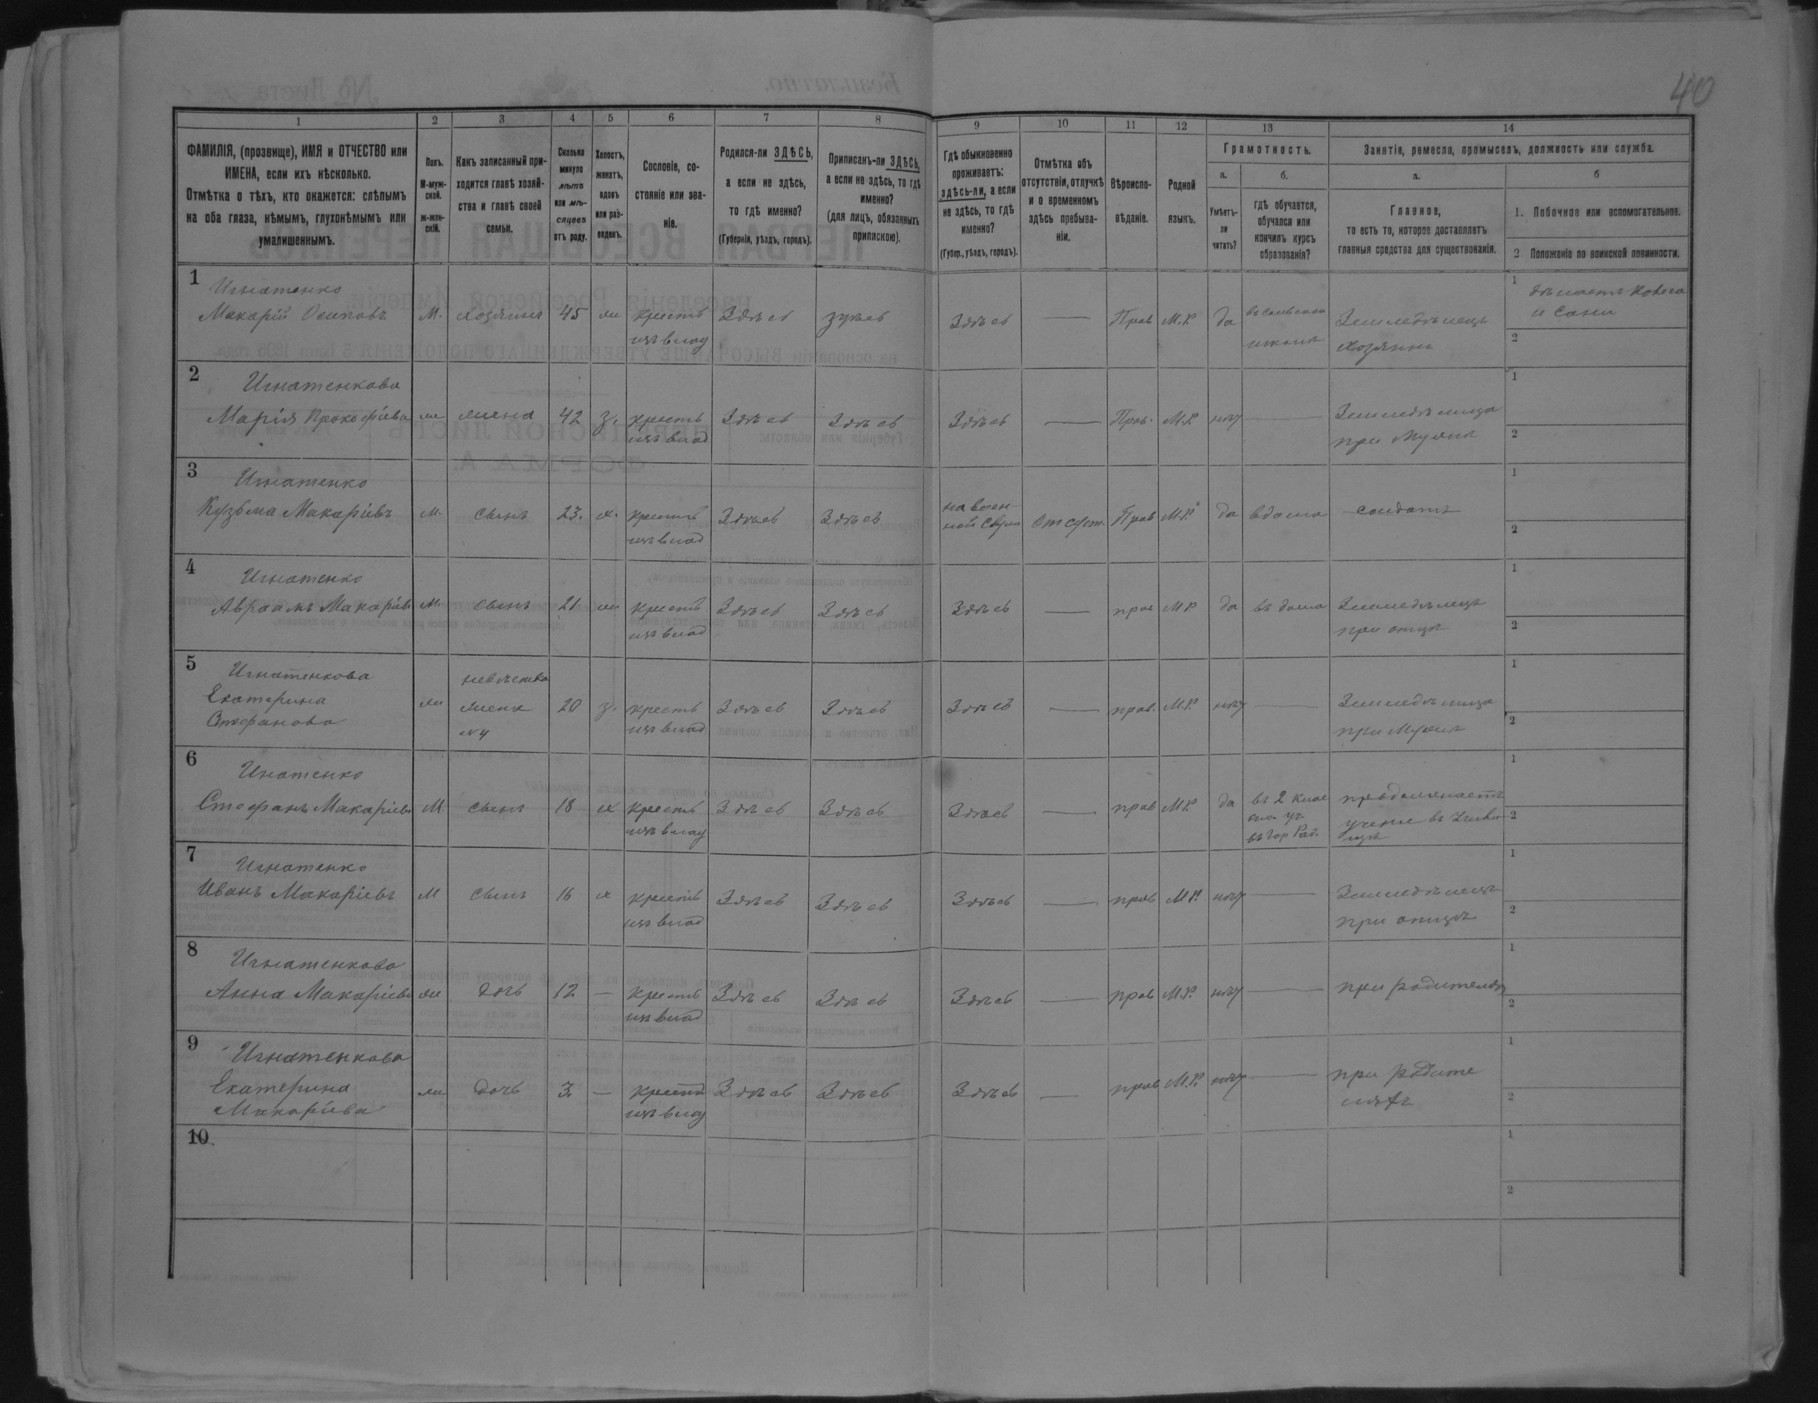 40
1 2 3 4 5 6 7 8 9 10 11 12 13 14
ФАМИЛІЯ, (прозвище), ИМЯ и ОТЧЕСТВО или
ИМЕНА, если ихъ нѣсколько.
Отмѣтка о тѣхъ, кто окажется: слѣпымъ
на оба глаза, нѣмымъ, глухонѣмымъ или
умалишеннымъ.
Полъ.
М-муж-
ской.
ж-жен-
скій.
Какъ записанный при-
ходится главѣ хозяй-
ства и главѣ своей
семьи.
Сколько
минуло
лѣтъ
или мѣ-
сяцевъ
отъ роду.
Холостъ,
женатъ,
вдовъ
или раз-
веденъ.
Сословіе, со-
стояніе или зва-
ніе.
Родился-ли ЗДѢСЬ,
а если не здѣсь,
то гдѣ именно?
(Губернія, уѣздъ, городъ).
Приписанъ-ли ЗДѢСЬ,
а если не здѣсь, то гдѣ
именно?
(для лицъ, обязанныхъ
припискою).
Гдѣ обыкновенно
проживаетъ:
здѣсь-ли, а если
не здѣсь, то гдѣ
именно?
(Губер., уѣздъ, городъ).
Отмѣтка объ
отсутствіи, отлучкѣ
и о временномъ
здѣсь пребыва-
ніи.
Вѣроиспо-
вѣданіе.
Родной
языкъ.
Грамотность.
а.
Умѣетъ-
ли
читать?
б.
гдѣ обучается,
обучался или
кончилъ курсъ
образованія?
Занятія, ремесло, промыселъ, должность или служба.
а.
Главное,
то есть то, которое доставляетъ
главныя средства для существованія.
б
1. Побочное или вспомогательное.
2 Положеніе по воинской повинности.
1
Игнатенко
Макарій Осиповъ
М.
хозяинъ
45
жи
крестъ
изъ влад
Здѣсь
здѣсь
Здѣсь
Прав
М.Р.
да
школа
Земледѣлецъ
хозяинъ
1
дѣлаетъ колеса
и сани
2
2
Игнатенкова
Марія Прокофіева
жи
жена
42
з.
крестъ
изъ влад
Здѣсь
Здѣсь
Здѣсь
Прав.
М.Р.
нѣт
Земледѣлица
при мужѣ
1
2
3
Игнатенко
Кузьма Макаріевъ
М.
сынъ
23.
х.
крестъ
изъ влад
Здѣсь
Здѣсь
на воен-
ной Служ
Отсут.
Прав
М.Р.
да
в дома
солдатъ
1
2
4
Игнатенко
Авраамъ Макарiев
М.
сынъ
21
жи
крестъ
изъ влад
Здѣсь
Здѣсь
Здѣсь
прав
М.Р
да
въ дома
Земледѣлецъ
при отцѣ
1
2
5
Игнатенкова
Екатерина
Стефанова
жи
невѣстка
жена
№4
20
з.
крестъ
изъ влад
Здѣсь
Здѣсь
Здѣсь
прав.
М.Р.
нѣт
Земледѣлица
при мужѣ
1
2
6
Игнатенко
Стефанъ Макаріев
М
сынъ
18
х
крестъ
изъ влад
Здѣсь
Здѣсь
Здѣсь
прав
М.Р.
да
въ 2 клас
въ гор
продолжаетъ
учение въ
1
2
7
Игнатенко
Иванъ Макаріевъ
М
сынъ
16
х
крестъ
изъ влад
Здѣсь
Здѣсь
Здѣсь
прав
М.Р.
нѣт
Земледѣлецъ
при отцѣ
1
2
8
Игнатенкова
Анна Макаріева
жи
дочь
12
—
крестъ
изъ влад
Здѣсь
Здѣсь
Здѣсь
прав
М.Р.
нѣт
при родителях
1
2
9
Игнатенкова
Екатерина
Макаріева
жи
дочь
3
—
крестъ
изъ влад
Здѣсь
Здѣсь
Здѣсь
прав
М.Р.
нѣт
при родите
ляхъ
1
2
10.
1
2